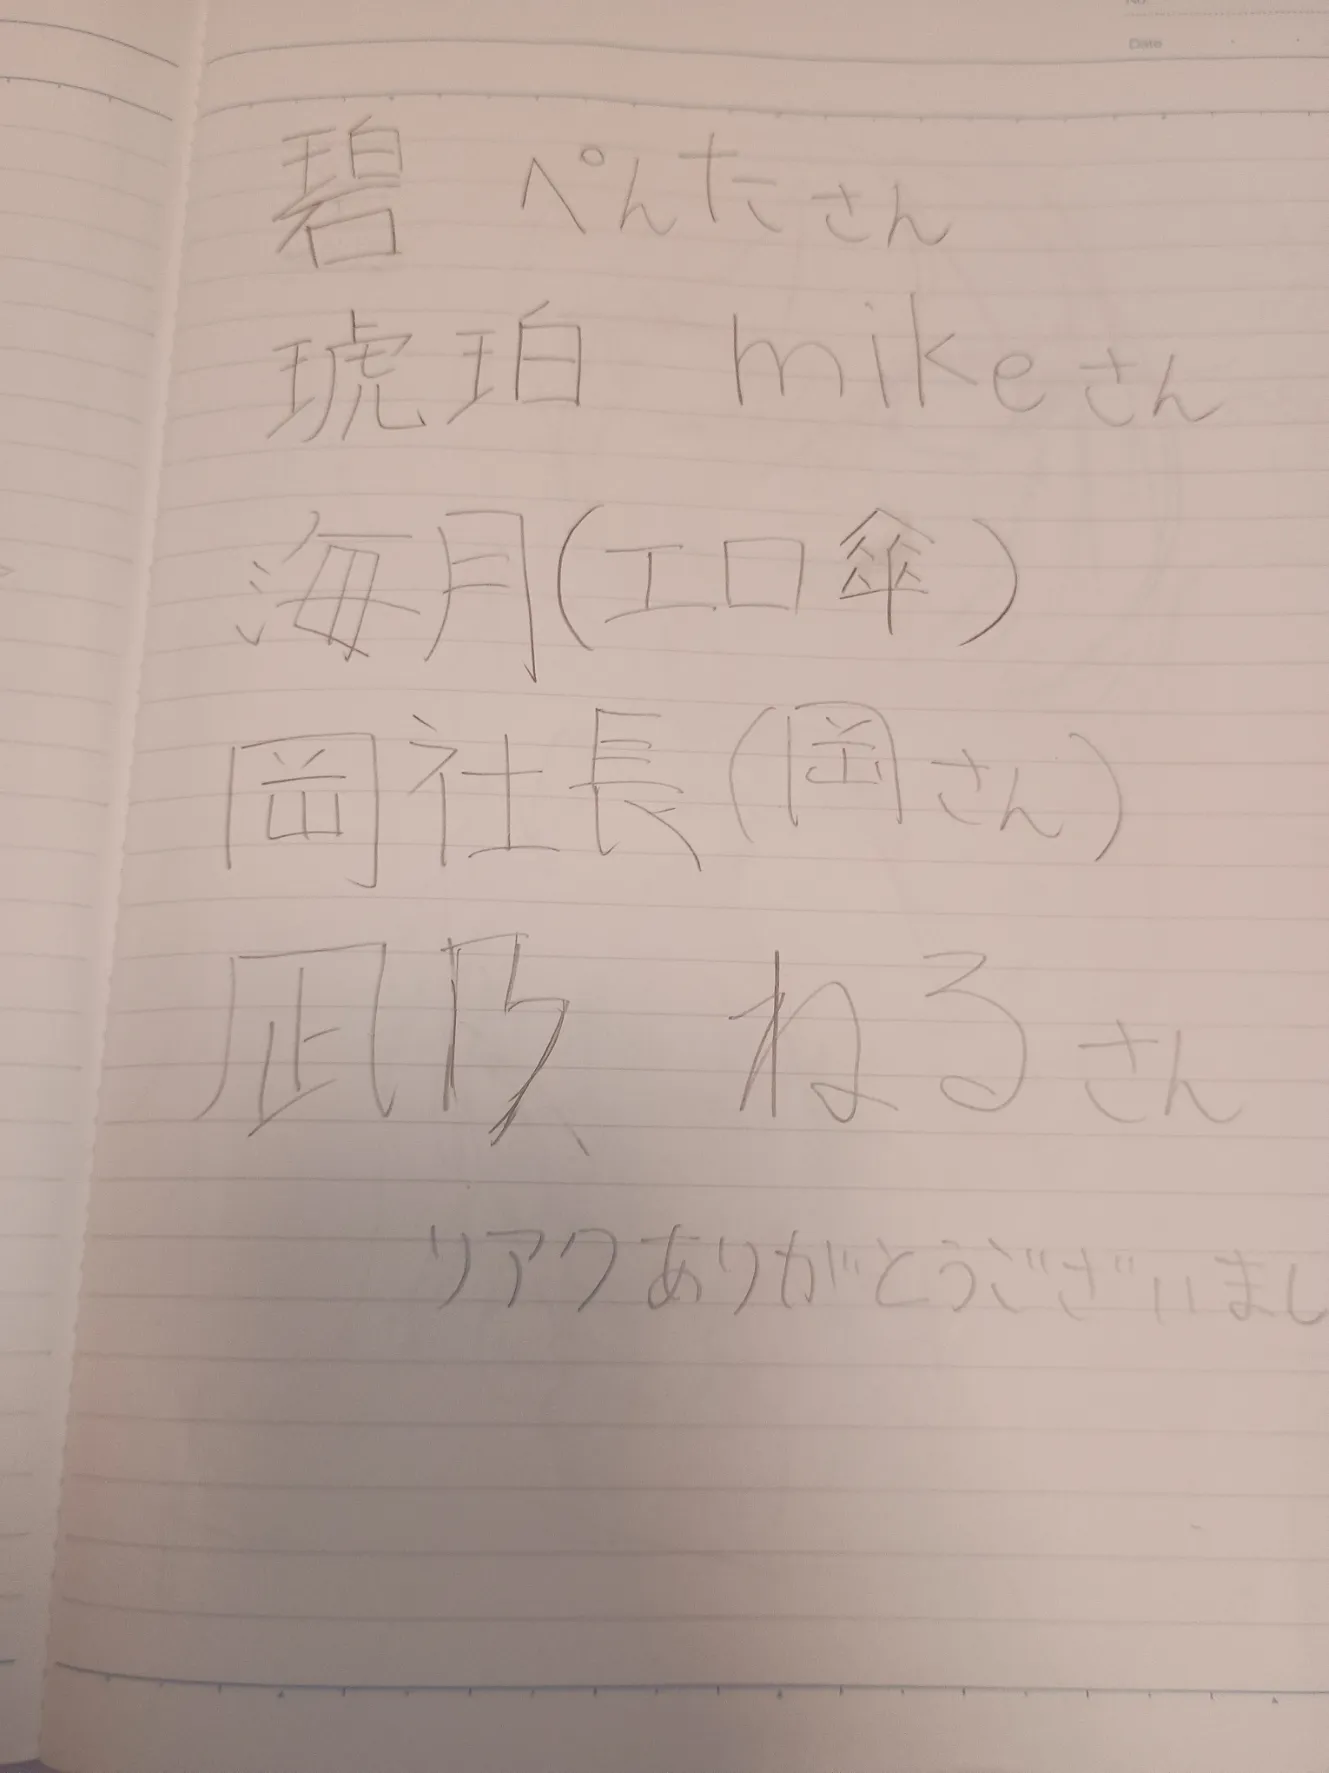 Date
碧 ぺんたさん
琥珀 mikeさん
海月(エロ傘)
岡社長(岡さん)
凪 ねるさん
リアクありがとうございまし